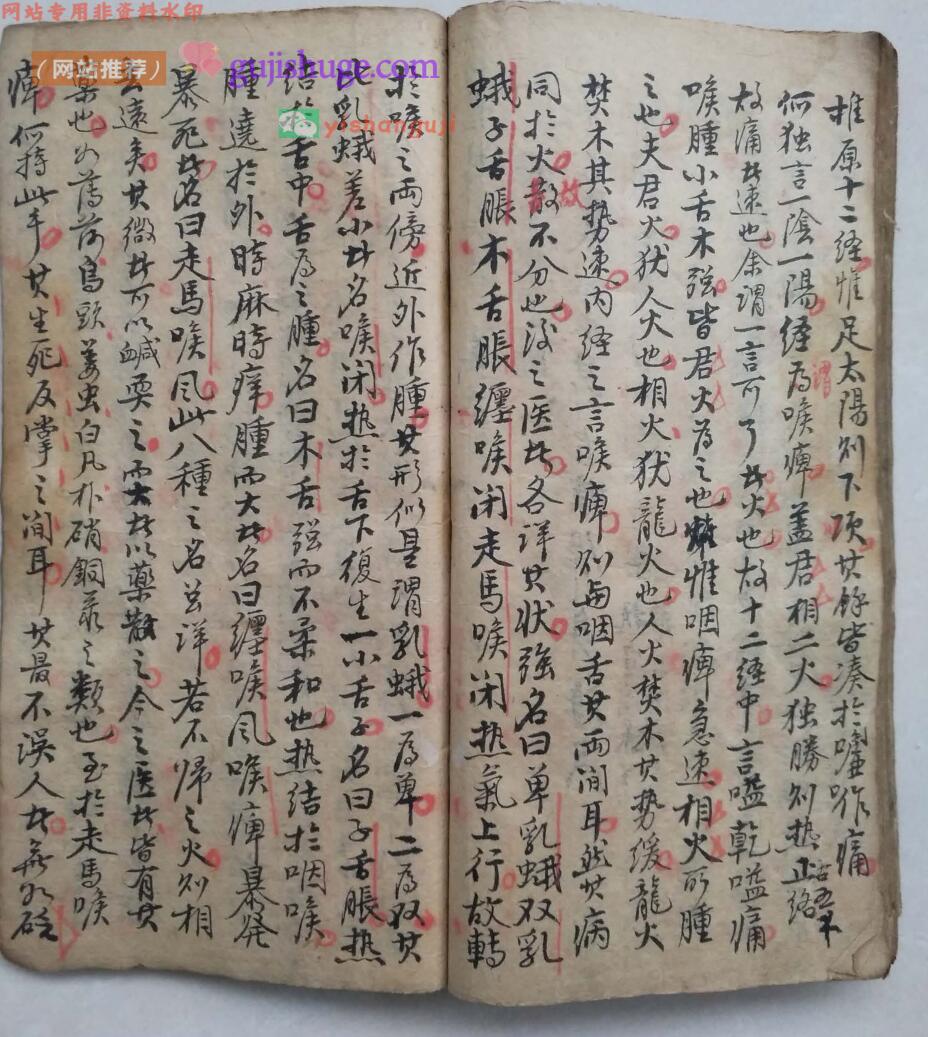 网站专用非资料水印
(网站推荐)
gujishuge.com
yishanguji
推原十二经惟足太陽别下项其餘皆凑於嚨嗌作痛
何独言一陰一陽经为喉痺盖君相二火独勝则热正络
谓
故痛甚速也余謂一言可了者火也故十二经中言嗌乾嗌痛
喉腫小舌木强皆君火为之也惟咽痺急速相火所腫
之也夫君火犹人火也相火犹龍火也人火焚木其势缓龍火
焚木其势速内经之言喉痺则與咽舌其两间耳然其病
同於火故不分也後之医者各详其状强名曰单乳蛾双乳
蛾子舌脹木舌脹纏喉闭走馬喉闭热氣上行故轉
於喉之两傍近外作腫其形似是谓乳蛾一为单二为双其
比乳蛾差小者名喉闭热於舌下復生一小舌子名曰子舌脹热
结於舌中舌为之腫名曰木舌强而不柔和也热结於咽喉
腫遶於外時麻時痒腫而大者名曰纏喉风喉痺暴發
暴死者名曰走馬喉风此八種之名虽详若不帰之火则相
去遠矣其微者可以鹹耎之而大者以藥散之今之医者皆有其
藥也如薄荷烏頭姜虫白凡朴硝銅綠之類也至於走馬喉
痺何待此乎其生死反掌之间耳其最不誤人者無如砭